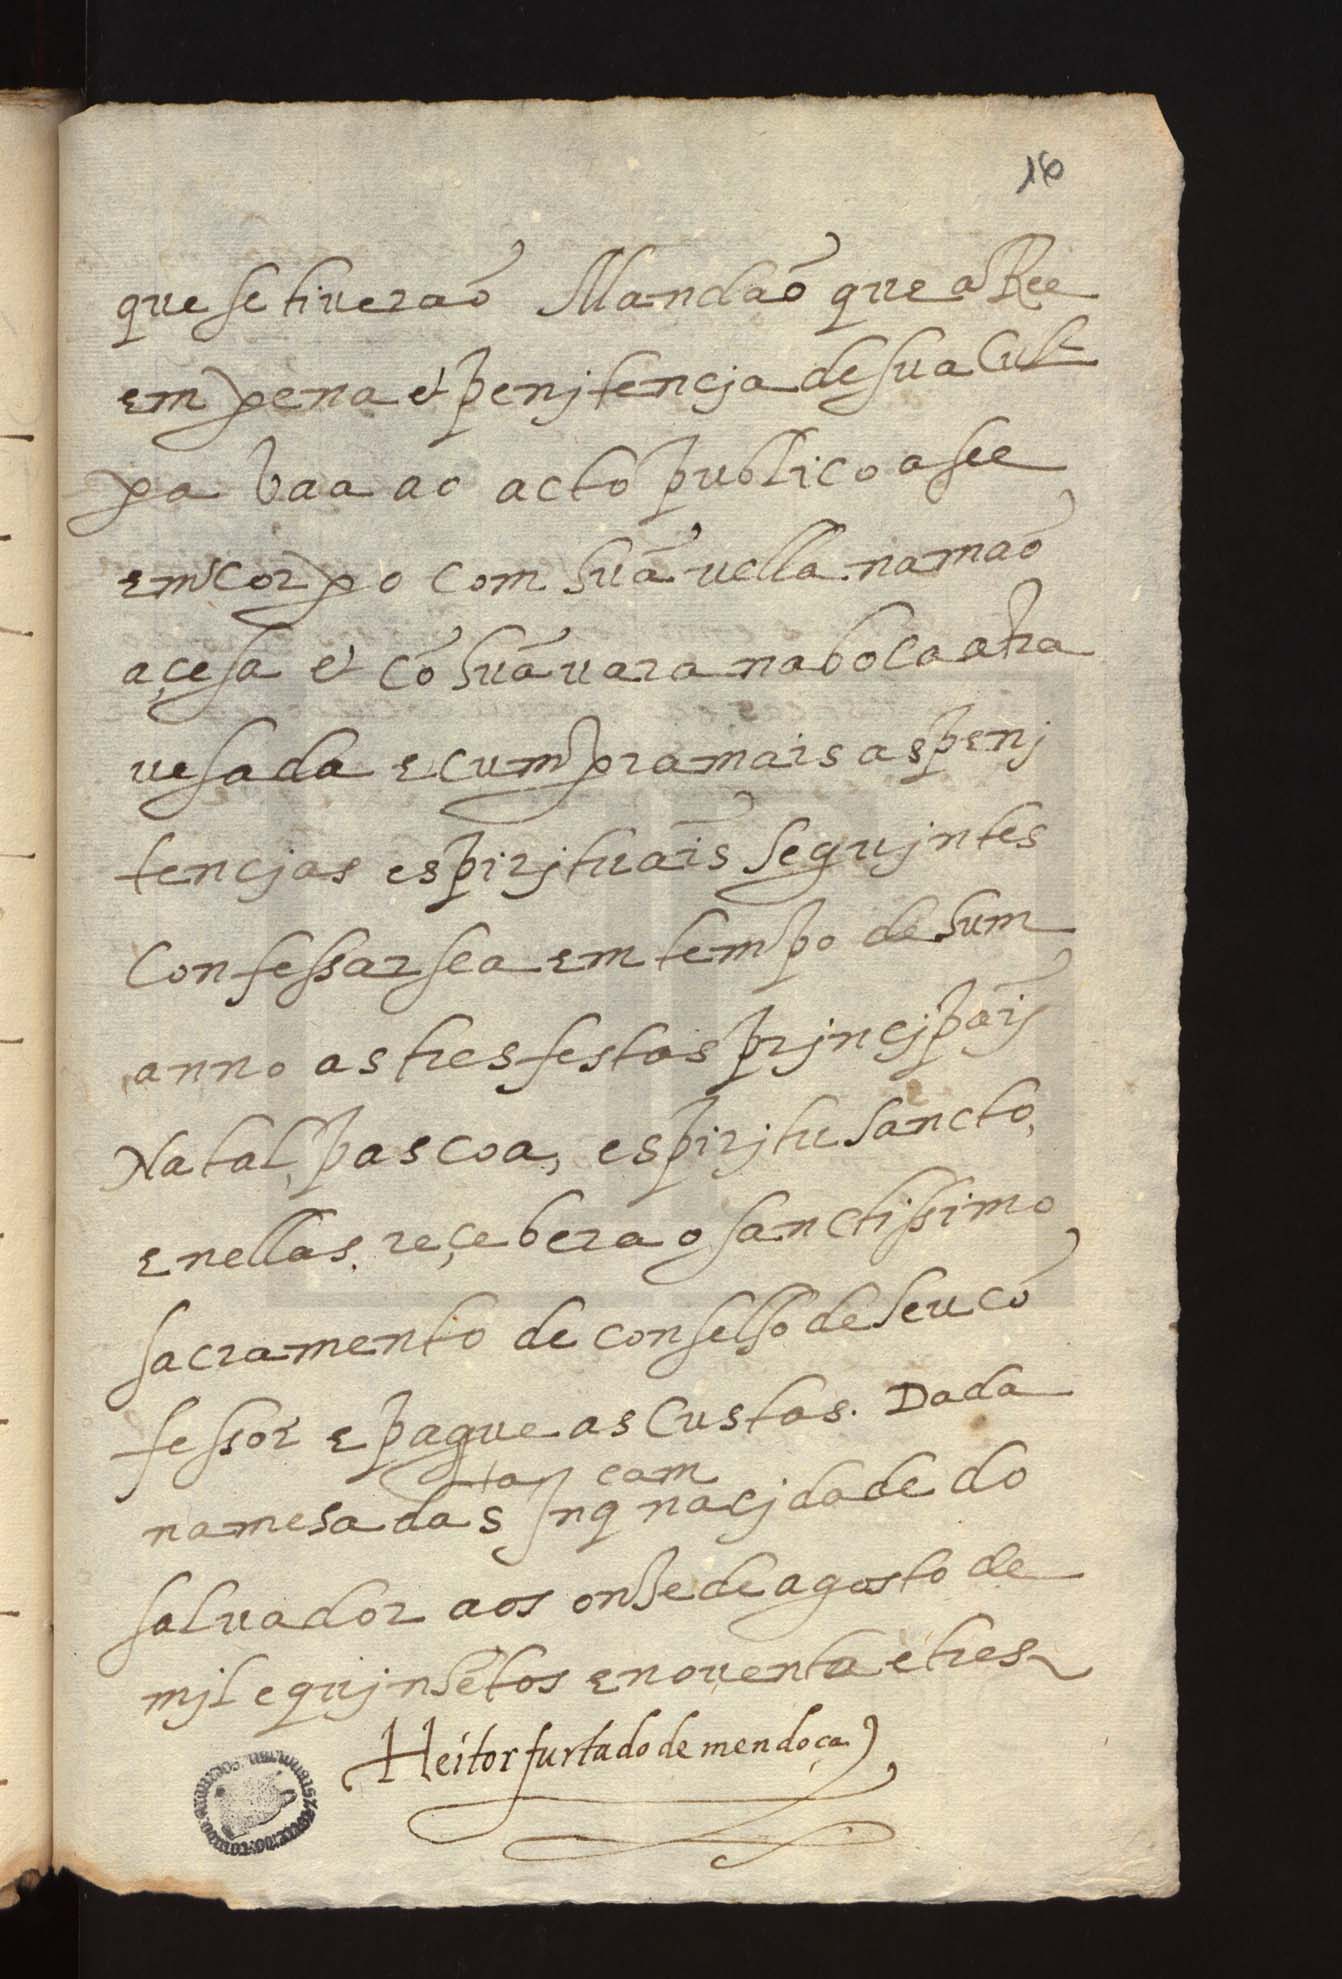 16
que se tiueraõ Mandaõ que a Ree
em pena et penjtencja de sua Cul
pa vaa ao acto publico a see
em corpo com huã uella na maõ
açesa et cõ huã uara na boca atra
uesada e cumpra mais as penj
tencjas espirjtuais segujntes
Confessarsea em tempo de hum
anno as tres festas prjncjpais
Natal, pascoa, espirjtu sancto,
e nellas reçebera o sanctissimo
sacramento de conselho de seu cõ
fessor e pague as Custas. Dada
na mesa da sta Inqcam na cjdade do
saluador aos onze de agosto de
mjl e qujnhẽtos e nouenta e tres
Heitor furtado de mendoça